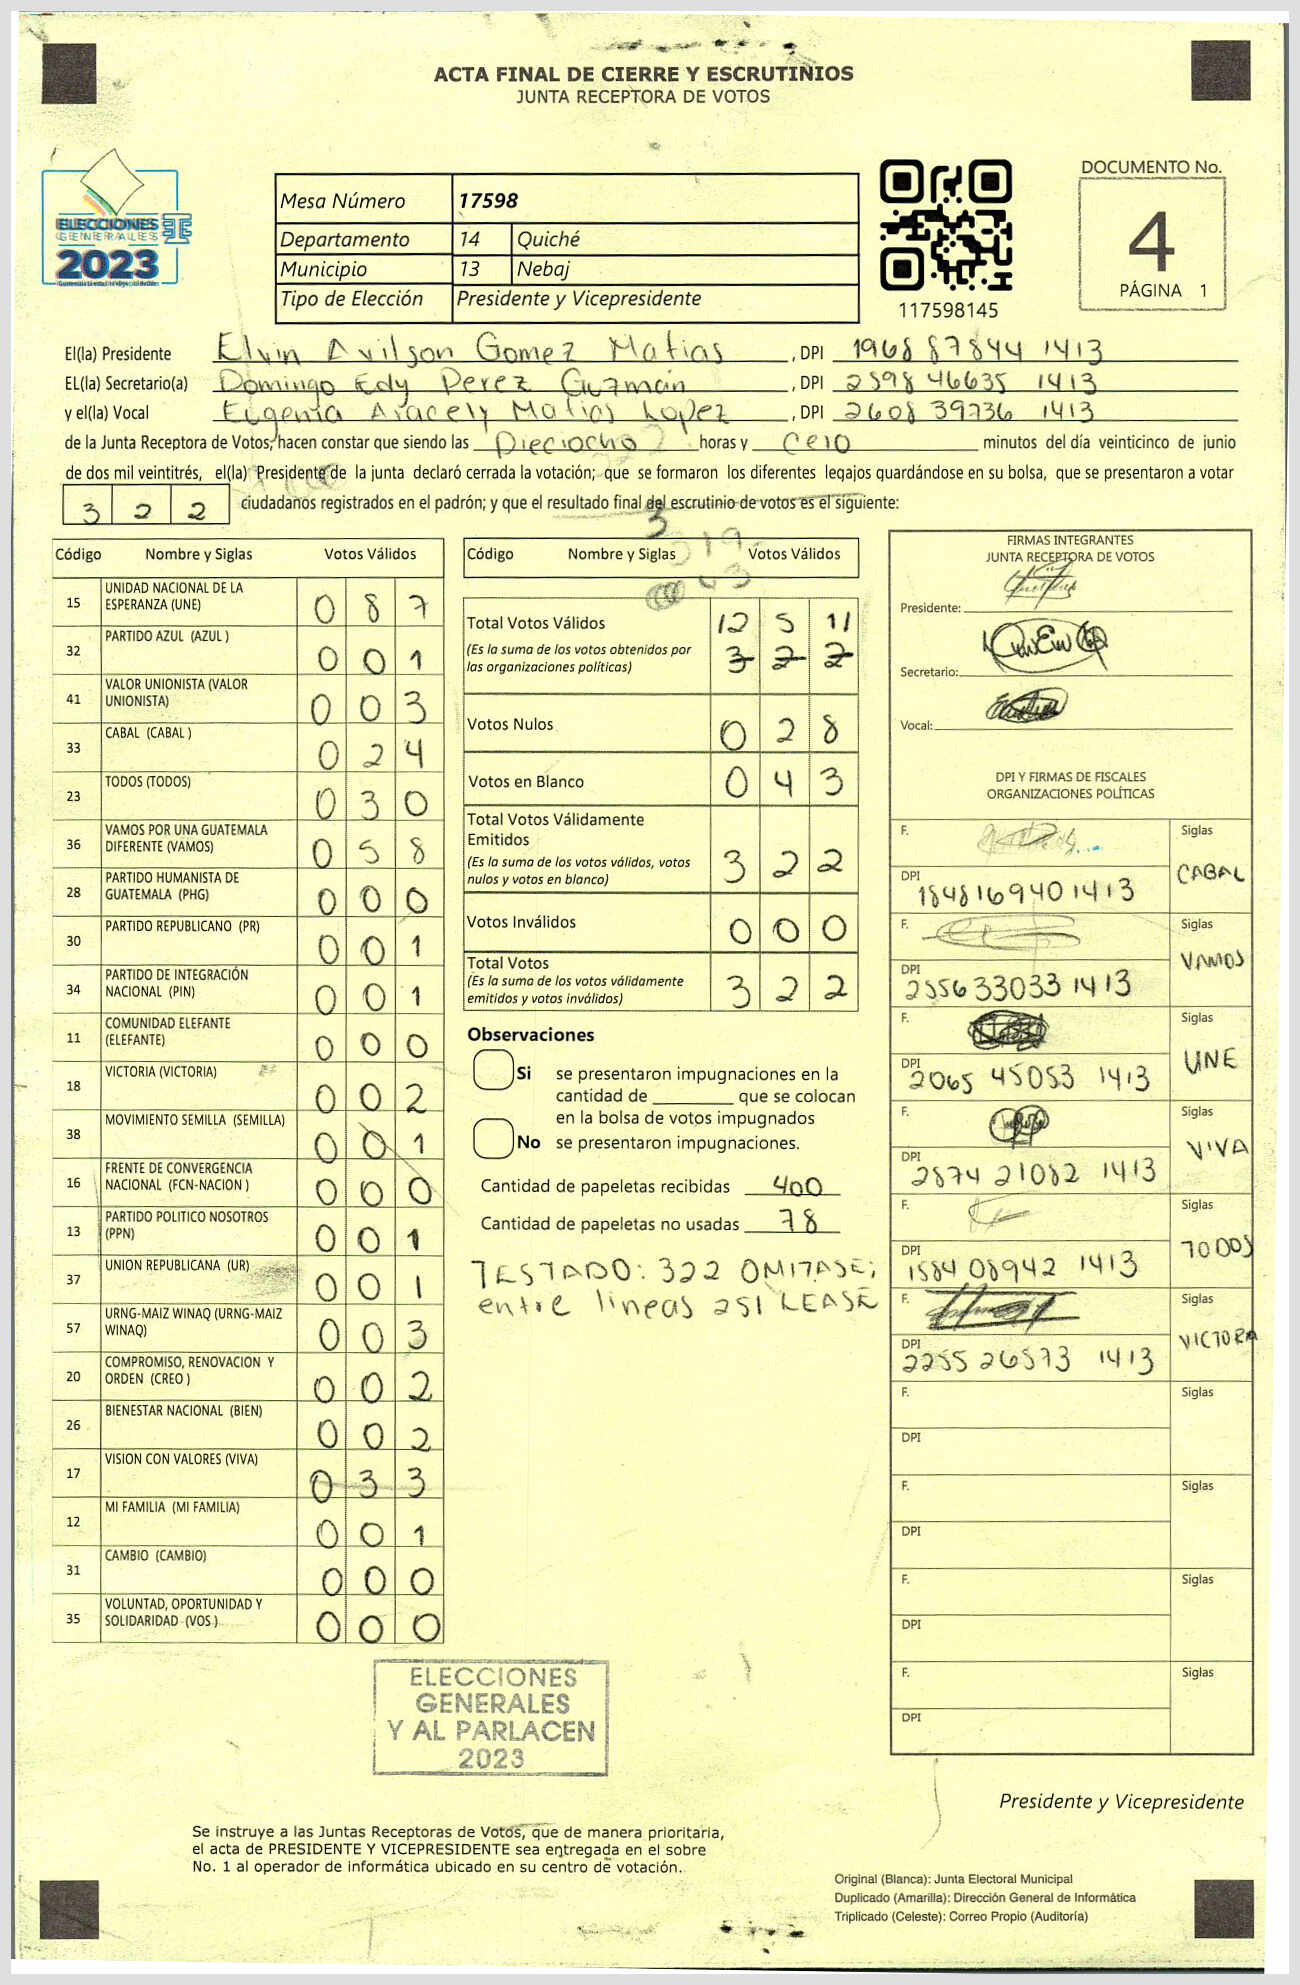 ACTA FINAL DE CIERRE Y ESCRUTINIOS
JUNTA RECEPTORA DE VOTOS
ELECCIONES
GENERALES
2023
Mesa Número 17598
Departamento 14 Quiché
Municipio 13 Nebaj
Tipo de Elección Presidente y Vicepresidente
117598145
DOCUMENTO No.
4
PÁGINA 1
El(la) Presidente Elvin Avilson Gomez Matias , DPI 1968 87844 1413
EL(la) Secretario(a) Domingo Edy Perez Guzmán , DPI 2598 46635 1413
y el(la) Vocal Eugenia Aracely Matias Lopez , DPI 2608 39736 1413
de la Junta Receptora de Votos, hacen constar que siendo las Dieciocho horas y Cero minutos del día veinticinco de junio
de dos mil veintitrés, el(la) Presidente de la junta declaró cerrada la votación; que se formaron los diferentes legajos quardándose en su bolsa, que se presentaron a votar
3 2 2 ciudadanos registrados en el padrón; y que el resultado final del escrutinio de votos es el siguiente:
Código Nombre y Siglas Votos Válidos
15 UNIDAD NACIONAL DE LA ESPERANZA (UNE) 0 8 7
32 PARTIDO AZUL (AZUL ) 0 0 1
41 VALOR UNIONISTA (VALOR UNIONISTA) 0 0 3
33 CABAL (CABAL ) 0 2 4
23 TODOS (TODOS) 0 3 0
36 VAMOS POR UNA GUATEMALA DIFERENTE (VAMOS) 0 5 8
28 PARTIDO HUMANISTA DE GUATEMALA (PHG) 0 0 0
30 PARTIDO REPUBLICANO (PR) 0 0 1
34 PARTIDO DE INTEGRACIÓN NACIONAL (PIN) 0 0 1
11 COMUNIDAD ELEFANTE (ELEFANTE) 0 0 0
18 VICTORIA (VICTORIA) 0 0 2
38 MOVIMIENTO SEMILLA (SEMILLA) 0 0 1
16 FRENTE DE CONVERGENCIA NACIONAL (FCN-NACION ) 0 0 0
13 PARTIDO POLITICO NOSOTROS (PPN) 0 0 1
37 UNION REPUBLICANA (UR) 0 0 1
57 URNG-MAIZ WINAQ (URNG-MAIZ WINAQ) 0 0 3
20 COMPROMISO, RENOVACION Y ORDEN (CREO ) 0 0 2
26 BIENESTAR NACIONAL (BIEN) 0 0 2
17 VISION CON VALORES (VIVA) 0 3 3
12 MI FAMILIA (MI FAMILIA) 0 0 1
31 CAMBIO (CAMBIO) 0 0 0
35 VOLUNTAD, OPORTUNIDAD Y SOLIDARIDAD (VOS ) 0 0 0
Código Nombre y Siglas Votos Válidos
Total Votos Válidos 12 5 11
(Es la suma de los votos obtenidos por las organizaciones políticas) 3 2 2
Votos Nulos 0 2 8
Votos en Blanco 0 4 3
Total Votos Válidamente Emitidos
(Es la suma de los votos válidos, votos nulos y votos en blanco) 3 2 2
Votos Inválidos 0 0 0
Total Votos
(Es la suma de los votos válidamente emitidos y votos inválidos) 3 2 2
Observaciones
Si se presentaron impugnaciones en la
cantidad de ________ que se colocan
en la bolsa de votos impugnados
No se presentaron impugnaciones.
Cantidad de papeletas recibidas 400
Cantidad de papeletas no usadas 78
TESTADO: 322 OMITASE;
entre lineas 251 LEASE
FIRMAS INTEGRANTES
JUNTA RECEPTORA DE VOTOS
Presidente:
Secretario:
Vocal:
DPI Y FIRMAS DE FISCALES
ORGANIZACIONES POLÍTICAS
F. Siglas
DPI 1848169401413 CABAL
F. Siglas
DPI 2556 33033 1413 VAMOS
F. Siglas
DPI 2065 45053 1413 UNE
F. Siglas
DPI 2874 21082 1413 VIVA
F. Siglas
DPI 1584 08942 1413 TODOS
F. Siglas
DPI 2255 26573 1413 VICTORA
F. Siglas
DPI
F. Siglas
DPI
F. Siglas
DPI
F. Siglas
DPI
ELECCIONES
GENERALES
Y AL PARLACEN
2023
Presidente y Vicepresidente
Se instruye a las Juntas Receptoras de Votos, que de manera prioritaria,
el acta de PRESIDENTE Y VICEPRESIDENTE sea entregada en el sobre
No. 1 al operador de informática ubicado en su centro de votación.
Original (Blanca): Junta Electoral Municipal
Duplicado (Amarilla): Dirección General de Informática
Triplicado (Celeste): Correo Propio (Auditoría)